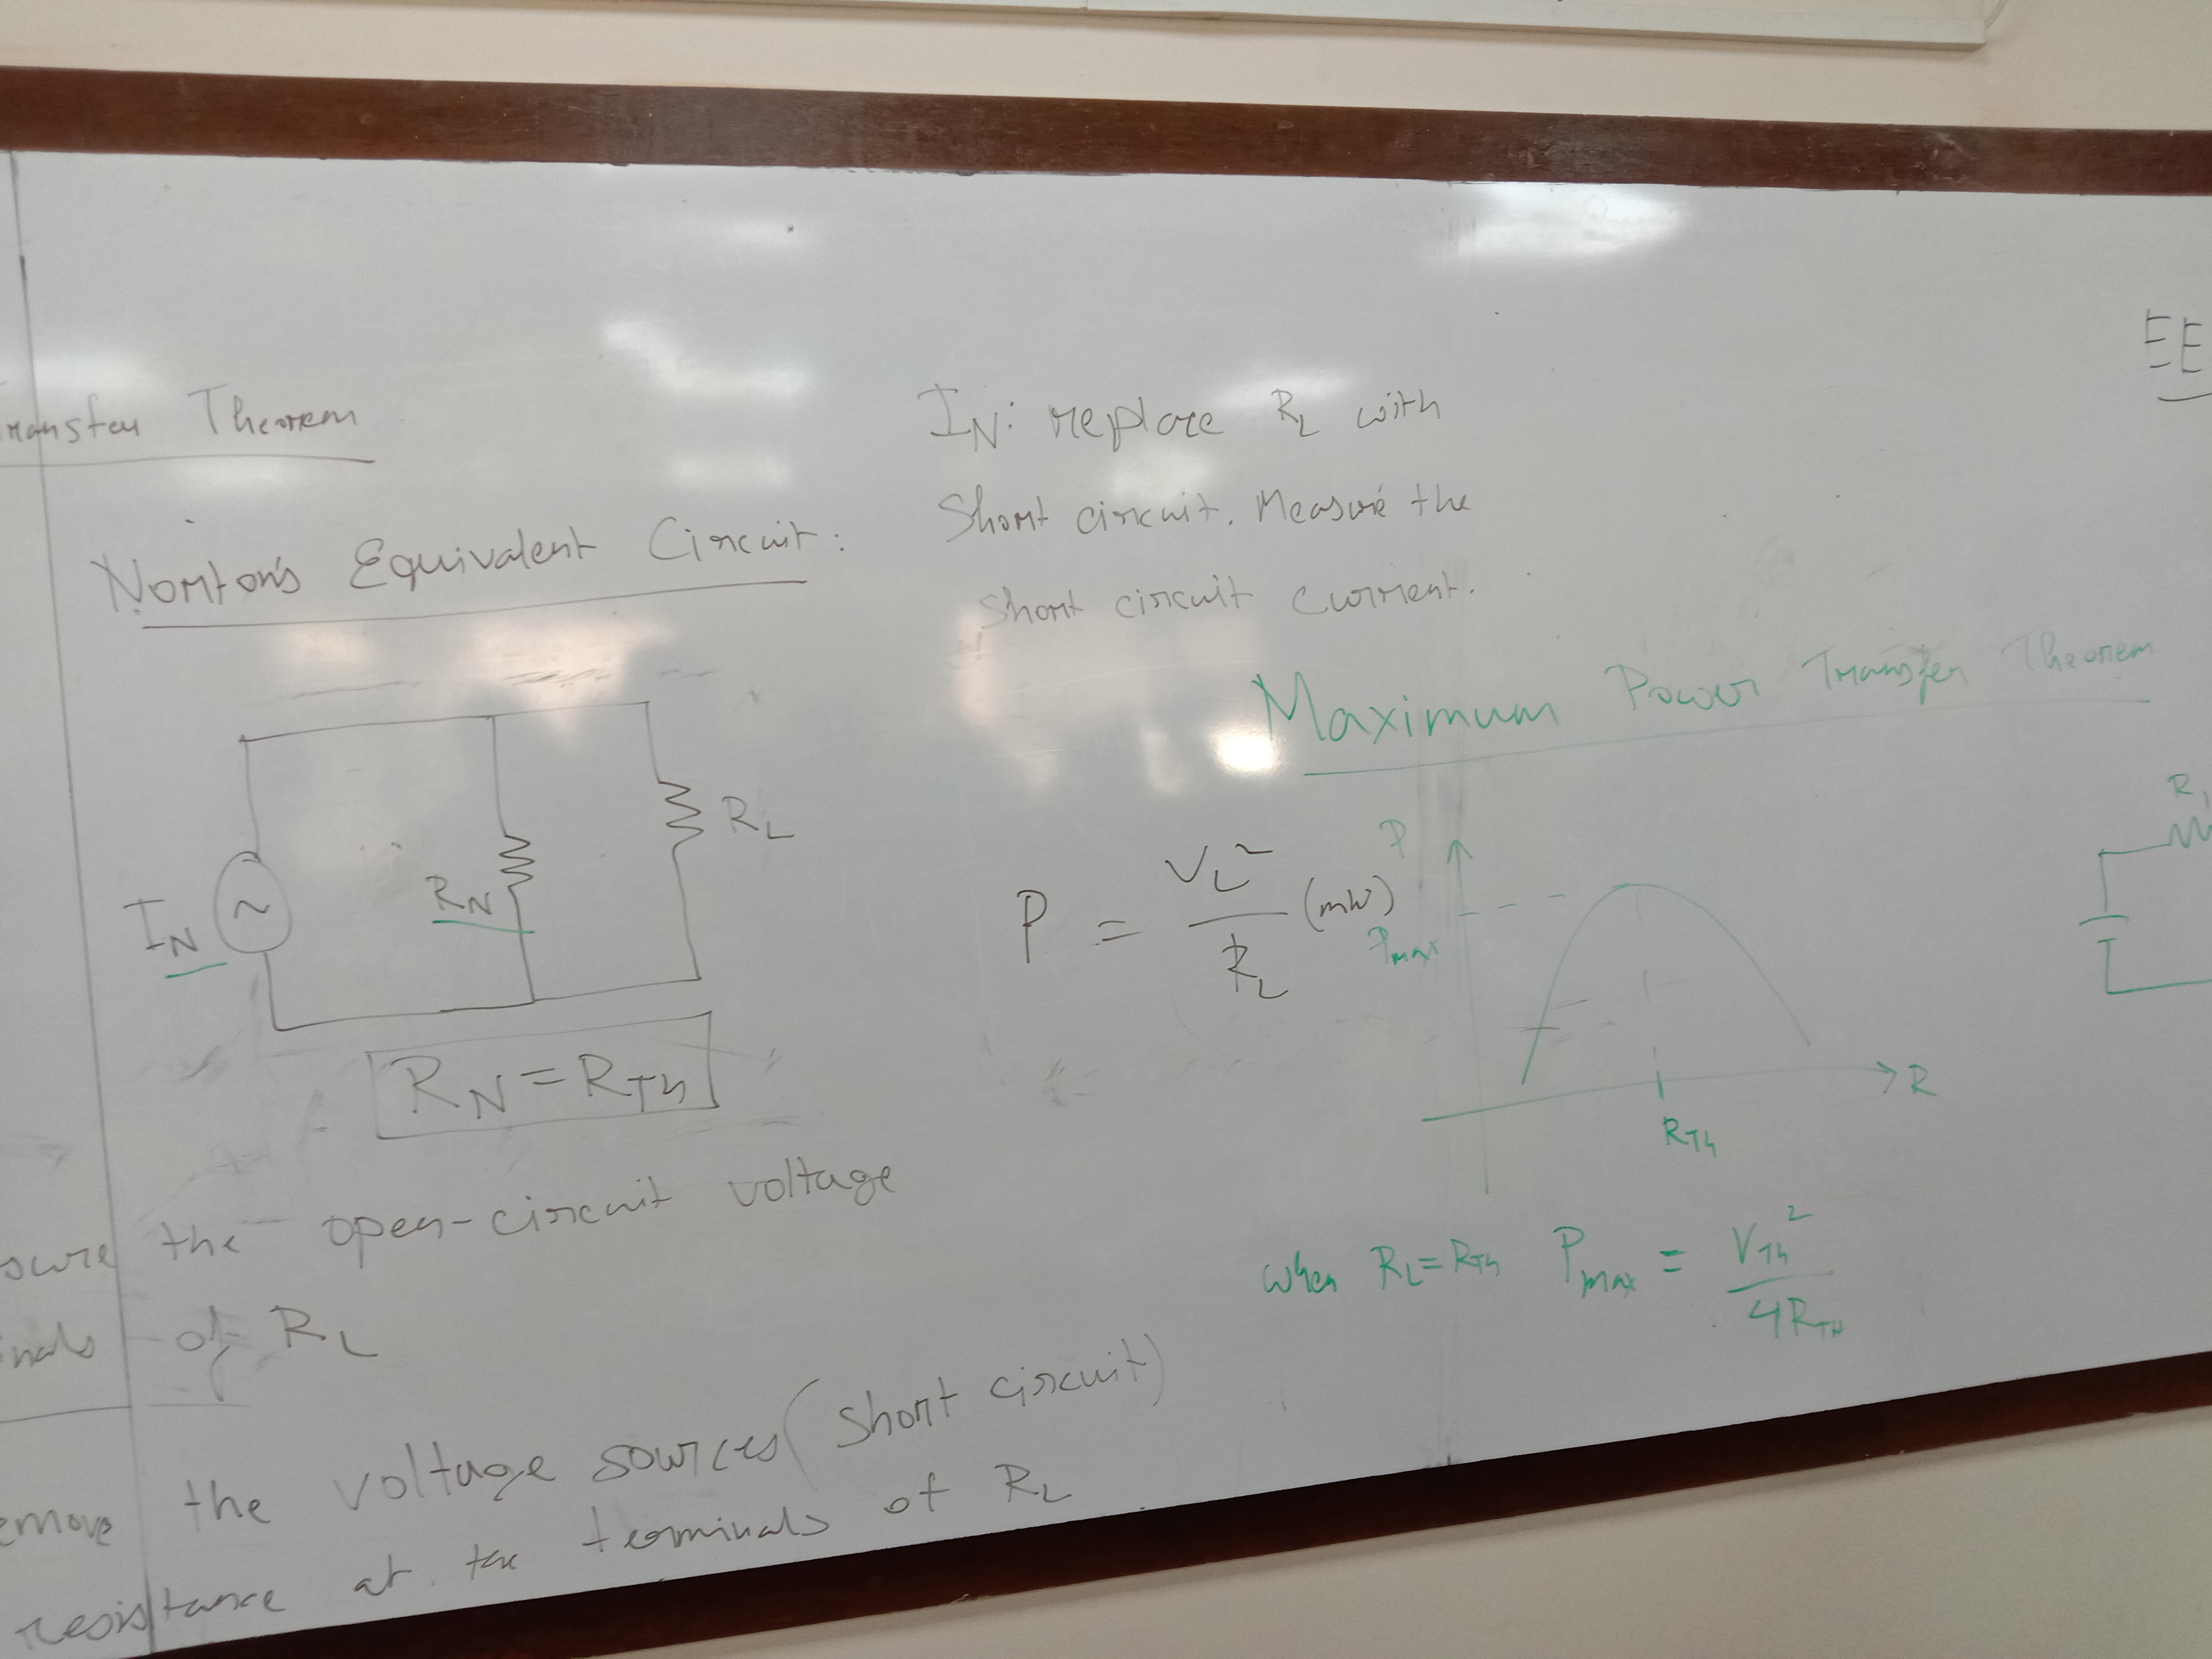 Transfer Theorem
Norton's Equivalent Circuit:
I_N
R_N
R_L
R_N = R_Th
the open-circuit voltage
of R_L
the voltage sources (short circuit)
resistance at the terminals of R_L
I_N: replace R_L with
short circuit. Measure the
short circuit current.
EE
Maximum Power Transfer Theorem
P = V_L² / R_L (mW)
P
P_max
R
R_Th
R_1
when R_L = R_Th P_max = V_Th² / 4R_TH